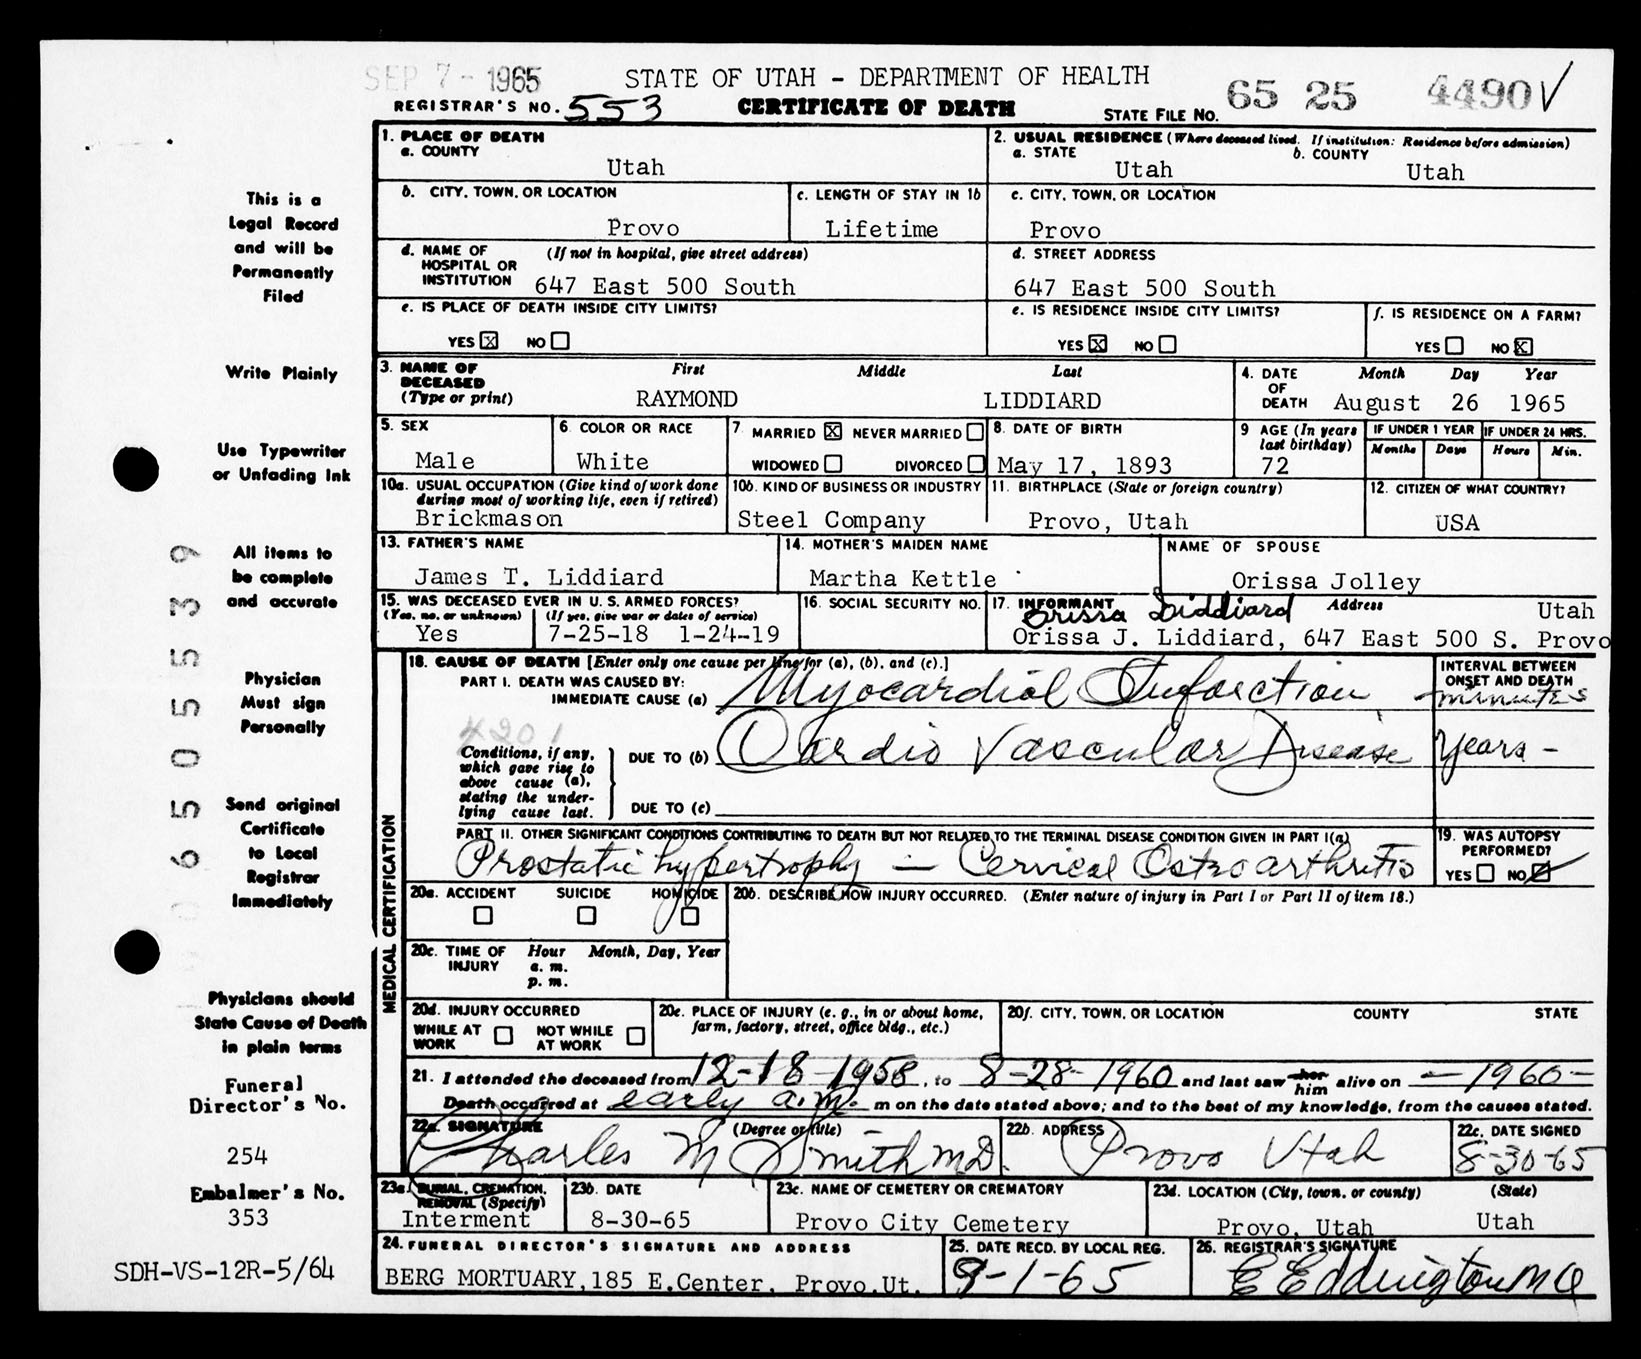 SEP 7 - 1965
STATE OF UTAH - DEPARTMENT OF HEALTH
65 25 4490 V
REGISTRAR'S NO. 553
CERTIFICATE OF DEATH
STATE FILE NO.
1. PLACE OF DEATH
a. COUNTY
Utah
2. USUAL RESIDENCE (Where deceased lived. If institution: Residence before admission)
a. STATE
Utah
b. COUNTY
Utah
b. CITY, TOWN, OR LOCATION
Provo
c. LENGTH OF STAY IN 1b
Lifetime
c. CITY, TOWN, OR LOCATION
Provo
d. NAME OF (If not in hospital, give street address)
HOSPITAL OR
INSTITUTION 647 East 500 South
d. STREET ADDRESS
647 East 500 South
e. IS PLACE OF DEATH INSIDE CITY LIMITS?
YES X NO
e. IS RESIDENCE INSIDE CITY LIMITS?
YES X NO
f. IS RESIDENCE ON A FARM?
YES NO X
3. NAME OF
DECEASED
(Type or print)
First Middle Last
RAYMOND LIDDIARD
4. DATE
OF
DEATH
Month Day Year
August 26 1965
5. SEX
Male
6. COLOR OR RACE
White
7. MARRIED X NEVER MARRIED
WIDOWED DIVORCED
8. DATE OF BIRTH
May 17, 1893
9 AGE (In years
last birthday)
72
IF UNDER 1 YEAR
Months Days
IF UNDER 24 HRS.
Hours Min.
10a. USUAL OCCUPATION (Give kind of work done
during most of working life, even if retired)
Brickmason
10b. KIND OF BUSINESS OR INDUSTRY
Steel Company
11. BIRTHPLACE (State or foreign country)
Provo, Utah
12. CITIZEN OF WHAT COUNTRY?
USA
13. FATHER'S NAME
James T. Liddiard
14. MOTHER'S MAIDEN NAME
Martha Kettle
NAME OF SPOUSE
Orissa Jolley
15. WAS DECEASED EVER IN U. S. ARMED FORCES?
(Yes, no, or unknown) (If yes, give war or dates of service)
Yes 7-25-18 1-24-19
16. SOCIAL SECURITY NO.
17. INFORMANT Address
Orissa Liddiard
Utah
Orissa J. Liddiard, 647 East 500 S. Provo
MEDICAL CERTIFICATION
18. CAUSE OF DEATH [Enter only one cause per line for (a), (b), and (c).]
PART I. DEATH WAS CAUSED BY:
IMMEDIATE CAUSE (a) Myocardial Infarction
INTERVAL BETWEEN
ONSET AND DEATH
minutes
4201
Conditions, if any,
which gave rise to
above cause (a),
stating the under-
lying cause last.
DUE TO (b) Cardio Vascular Disease
Years -
DUE TO (c)
PART II. OTHER SIGNIFICANT CONDITIONS CONTRIBUTING TO DEATH BUT NOT RELATED TO THE TERMINAL DISEASE CONDITION GIVEN IN PART I(a)
Prostatic hypertrophy — Cervical Osteoarthritis
19. WAS AUTOPSY
PERFORMED?
YES NO X
20a. ACCIDENT SUICIDE HOMICIDE
20b. DESCRIBE HOW INJURY OCCURRED. (Enter nature of injury in Part I or Part II of item 18.)
20c. TIME OF
INJURY
Hour Month, Day, Year
a. m.
p. m.
20d. INJURY OCCURRED
WHILE AT
WORK
NOT WHILE
AT WORK
20e. PLACE OF INJURY (e. g., in or about home,
farm, factory, street, office bldg., etc.)
20f. CITY, TOWN, OR LOCATION COUNTY STATE
21. I attended the deceased from 12-18-1958, to 8-28-1960 and last saw her him alive on — 1960 —
Death occurred at early a.m. m on the date stated above; and to the best of my knowledge, from the causes stated.
22a. SIGNATURE (Degree or title)
Charles M Smith MD.
22b. ADDRESS
Provo Utah
22c. DATE SIGNED
8-30-65
23a. BURIAL, CREMATION,
REMOVAL (Specify)
Interment
23b. DATE
8-30-65
23c. NAME OF CEMETERY OR CREMATORY
Provo City Cemetery
23d. LOCATION (City, town, or county) (State)
Provo, Utah Utah
24. FUNERAL DIRECTOR'S SIGNATURE AND ADDRESS
BERG MORTUARY, 185 E.Center, Provo.Ut.
25. DATE RECD. BY LOCAL REG.
9-1-65
26. REGISTRAR'S SIGNATURE
E Eddington MD
This is a
Legal Record
and will be
Permanently
Filed
Write Plainly
Use Typewriter
or Unfading Ink
All items to
be complete
and accurate
Physician
Must sign
Personally
Send original
Certificate
to Local
Registrar
Immediately
Physicians should
State Cause of Death
in plain terms
Funeral
Director's No.
254
Embalmer's No.
353
SDH-VS-12R-5/64